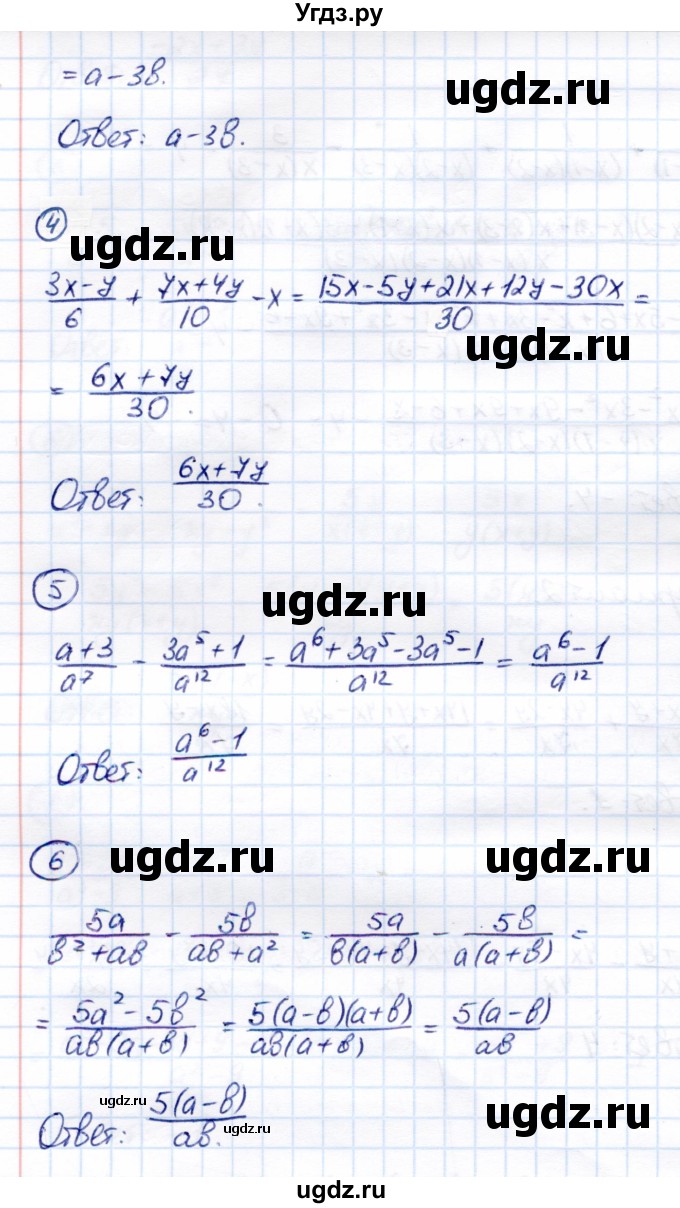 Угдз.ру
= a - 3b.
ugdz.ru
Ответ: a - 3b.
4
ugdz.ru
(3x - y)/6 + (7x + 4y)/10 - x = (15x - 5y + 21x + 12y - 30x)/30 =
ugdz.ru
= (6x + 7y)/30.
Ответ: (6x + 7y)/30.
5
ugdz.ru
(a + 3)/a⁷ - (3a⁵ + 1)/a¹² = (a⁶ + 3a⁵ - 3a⁵ - 1)/a¹² = (a⁶ - 1)/a¹²
Ответ: (a⁶ - 1)/a¹²
ugdz.ru
6 ugdz.ru ugdz.ru
5a/(b² + ab) - 5b/(ab + a²) = 5a/(b(a + b)) - 5b/(a(a + b)) =
= (5a² - 5b²)/(ab(a + b)) = (5(a - b)(a + b))/(ab(a + b)) = (5(a - b))/(ab)
ugdz.ru
Ответ: (5(a - b))/(ab).
ugdz.ru
ugdz.ru
ugdz.ru